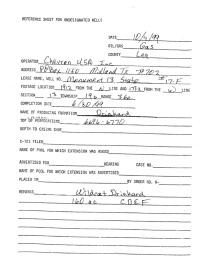 REFERENCE SHEET FOR UNDESIGNATED WELLS
DATE 10/4/99
OIL/GAS Gas
COUNTY Lea
OPERATOR Chevron USA Inc
ADDRESS P.O. Box 1150 Midland Tx 79702
LEASE NAME, WELL NO. Monument 13 State #17-F
FOOTAGE LOCATION 1912 FROM THE N LINE AND FROM THE W LINE
SECTION 13 TOWNSHIP 19s RANGE 36e
COMPLETION DATE 6/30/99
NAME OF PRODUCING FORMATION Drinkard
TOP OF PERFORATIONS 6696-6770
DEPTH TO CASING SHOE
C-123 FILED
NAME OF POOL FOR WHICH EXTENSION WAS ASKED
ADVERTISED FOR HEARING CASE NO.
NAME OF POOL FOR WHICH EXTENSION WAS ADVERTISED
PLACED IN BY ORDER NO. R-
REMARKS Wildcat Drinkard
160 ac C D E F